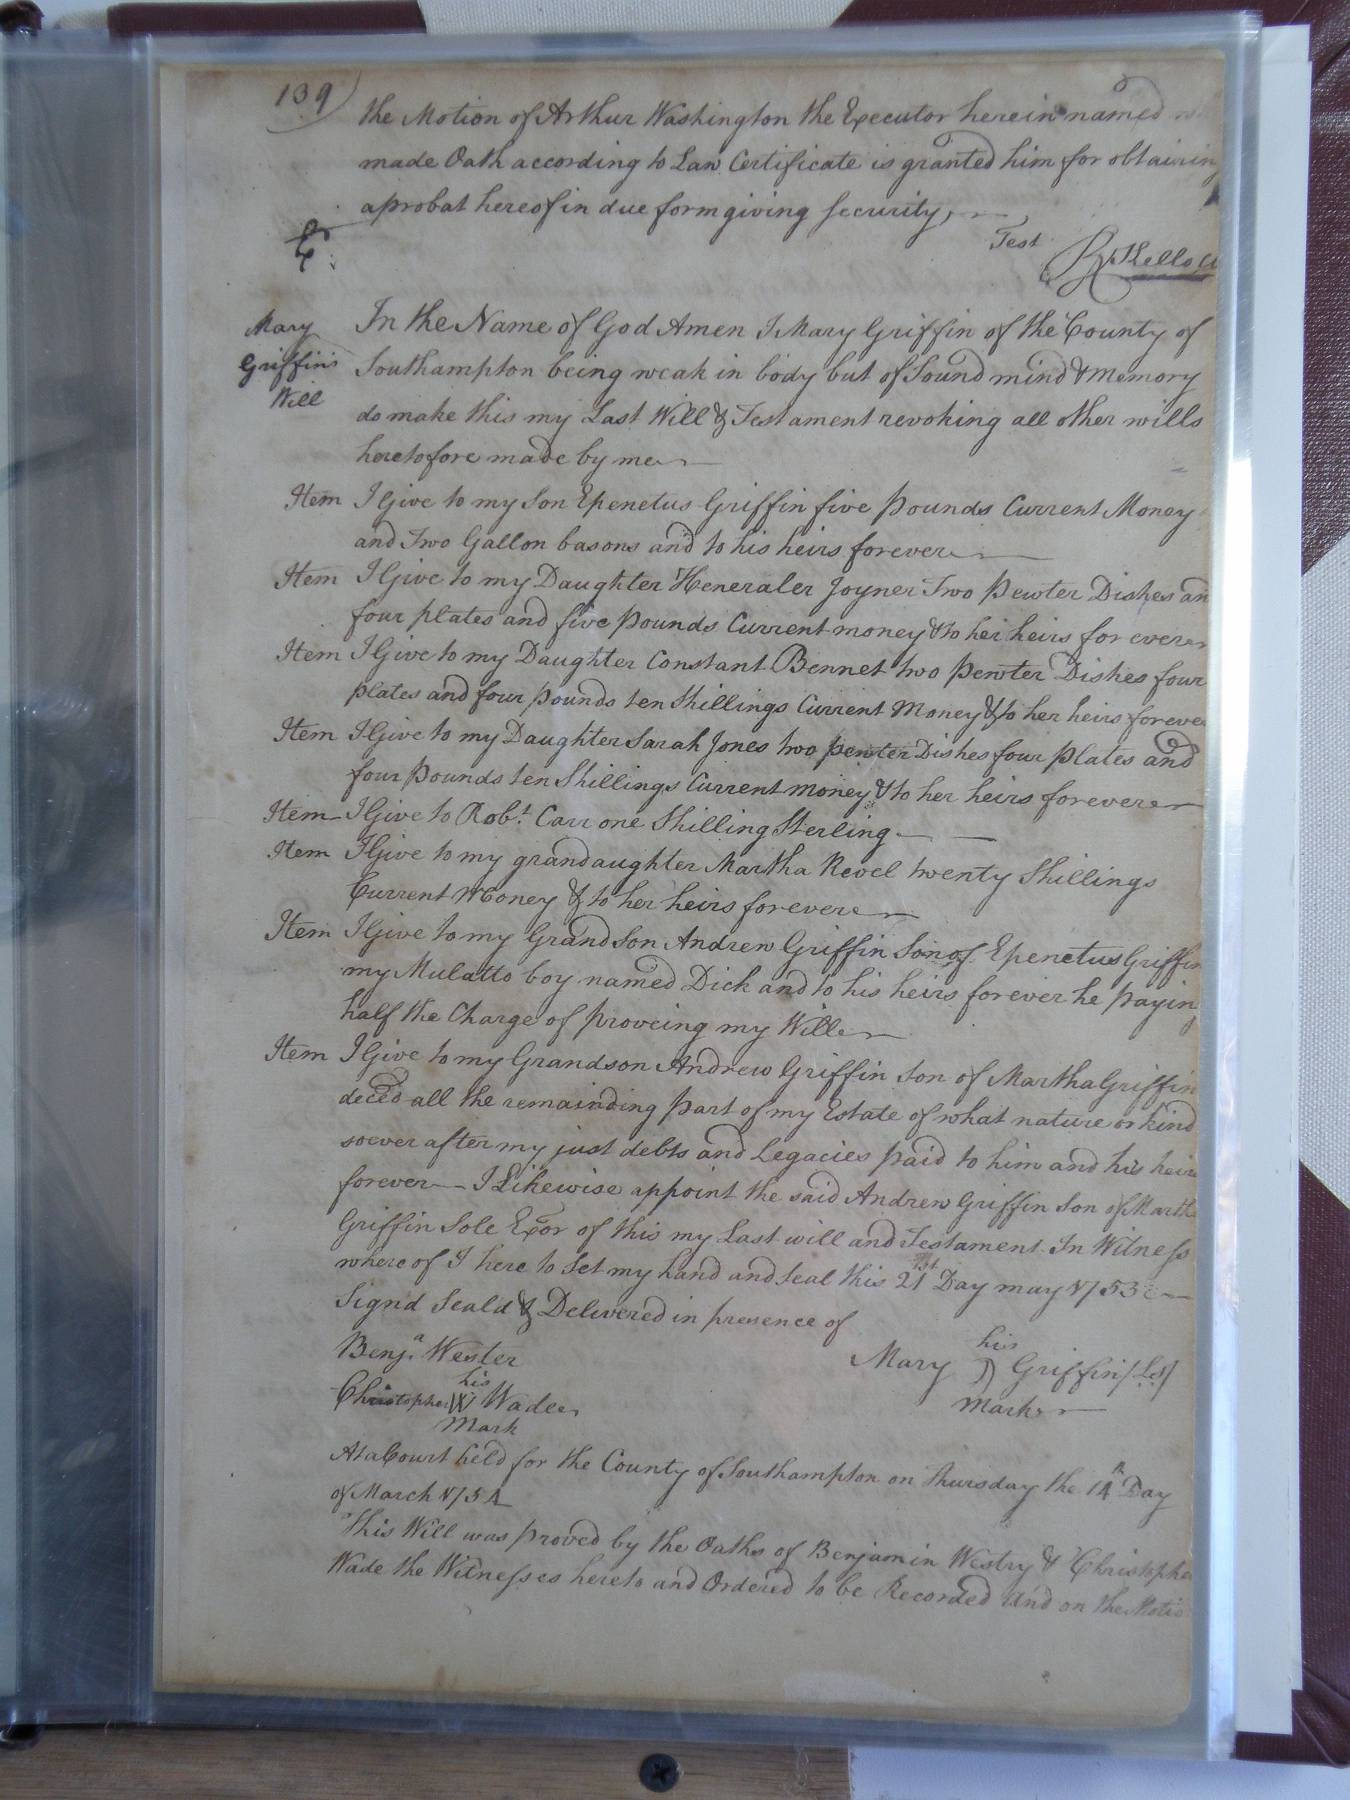 139)
the Motion of Arthur Washington the Executor herein named
made Oath according to Law Certificate is granted him for obtaining
a probat hereof in due form giving security,
Test
Mary Griffin's Will
In the Name of God Amen I Mary Griffin of the County of
Southampton being weak in body but of Sound mind & Memory
do make this my Last Will & Testament revoking all other wills
heretofore made by me
Item I Give to my Son Epenetus Griffin five pounds Current Money
and Two Gallon basons and to his heirs forever
Item I Give to my Daughter Heneraler Joyner Two Pewter Dishes an
four plates and five pounds Current money & to her heirs for ever
Item I Give to my Daughter Constant Bennet two pewter Dishes four
plates and four pounds ten Shillings Current Money & to her heirs foreve
Item I Give to my Daughter Sarah Jones two pewter Dishes four plates and
four pounds ten Shillings Current money & to her heirs forever
Item I Give to Robt. Carr one Shilling Sterling
Item I Give to my grandaughter Martha Revel twenty Shillings
Current Money & to her heirs forever
Item I Give to my Grand Son Andrew Griffin Son of Epenetus Griffin
my Mulatto boy named Dick and to his heirs forever he paying
half the Charge of proveing my Will
Item I Give to my Grandson Andrew Griffin Son of Martha Griffin
deced all the remainding part of my Estate of what nature or kind
soever after my just debts and Legacies paid to him and his heirs
forever I Likewise appoint the said Andrew Griffin Son of Martha
Griffin Sole Exor of this my Last will and Testament In Witness
where of I here to Set my hand and seal this 21st Day may 1753
Signd Seald & Delivered in presence of
Benja. Wester
his
Mary ) Griffin (Ls)
mark
his
Christopher W Wade
Mark
At a Court held for the County of Southampton on Thursday the 14th Day
of March 1754
This Will was proved by the Oaths of Benjamin Westry & Christopher
Wade the Witnesses hereto and Ordered to be Recorded And on the Motio